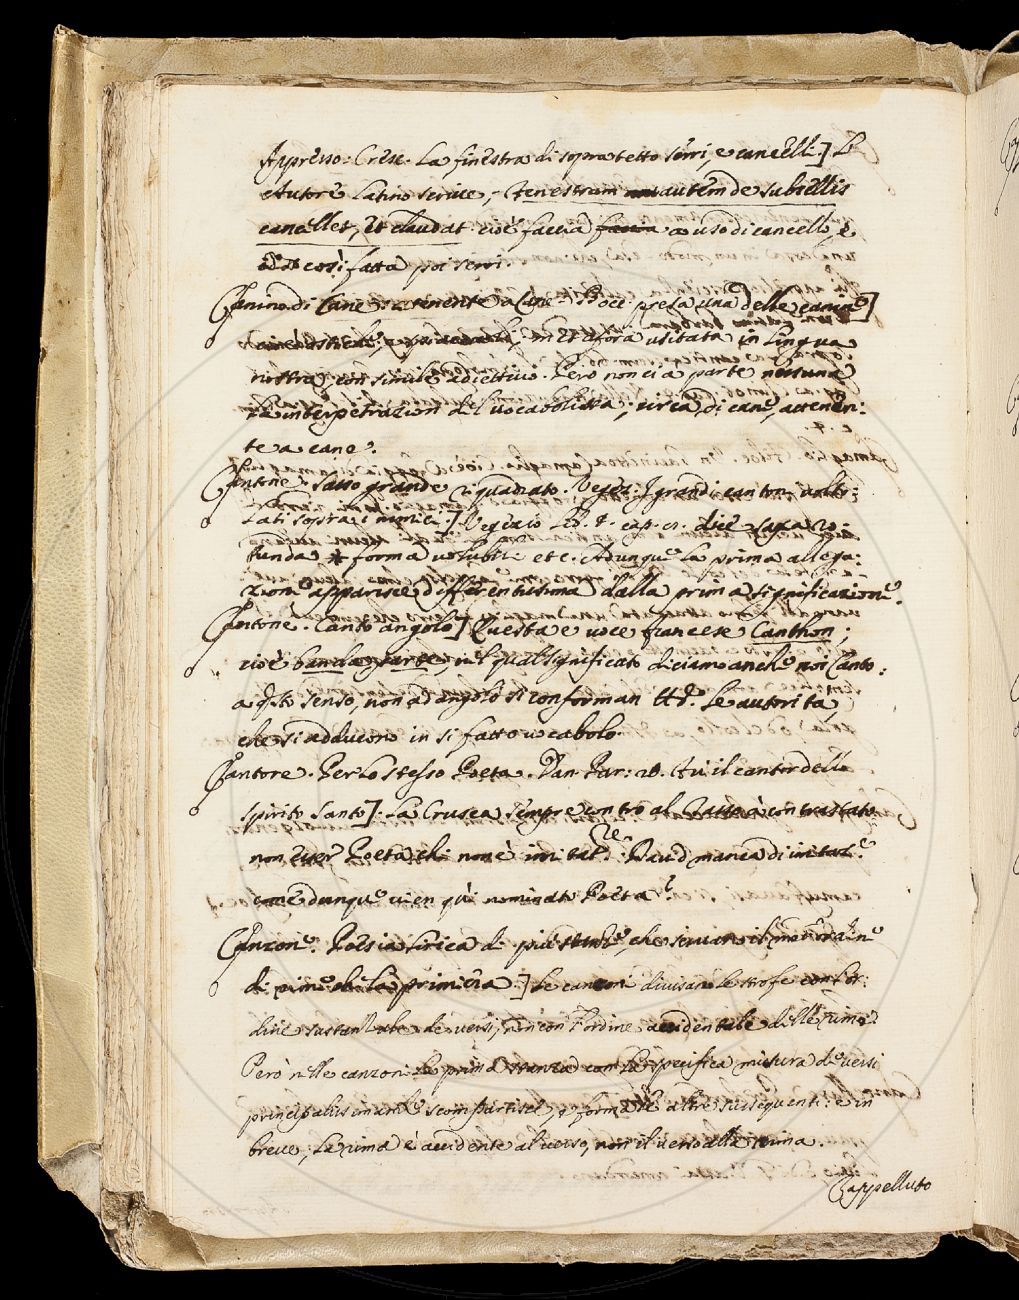 Appresso: Cresc. La finestra di sopra tetto serri, e cancelli.] L'
Autore Latino scrive, Fenestram autem de subsellis
cancellet, et claudat. cioè faccia faccia a uso di cancello, e
così fatta poi serri.
Canino. di Cane: attenente a Cane. Boce presa una delle canine]
metafora usitata in Lingua
nostra, con simile adiettivo. Però non ci à parte nessuna
l'interpetrazion del vocabolista, circa, di cane, attenen:
te a cane.
Cantone. sasso grande riquadrato. Veget. I grandi canton volti:
Lati sopra i nimici.] Vegezio Lib. 4. cap. 8. dice saxa ro:
tunda * forma volubili etc. Adunque la prima allega:
zione apparisce differentissima dalla prima significazione.
Cantone. Canto angolo] Questa e voce francese Canthon;
cioè banda, parte, nel qual significato diciamo anche noi Canto:
a qsto senso, non ad angolo si conforman le autorità,
che si adducono in sì fatto vocabolo.
Cantore. Per lo stesso Poeta. Dan. Par: 20. Fu il cantor dello
spirito santo]. La Crusca sempre contro al Tasso à contrastato
non esser Poeta chi non è imitatre. David manca di imitaze.
come dunque vien quì nominato Poeta?
Canzone. Poesia lirica di più stanze, che servano il medesimo ordine
di rime che la primiera.] Le canzoni divisan le strofe con l'or:
dine sustanziale de versi, non con l'ordine accidentale delle rime.
Però nelle canzoni la prima stanza con la specifica misura de versi
principalissimamte scompartisce, e forma le altre sussequenti: e in
breve, la rima è accidente al verso, non il verso alla rima.
Cappelluto